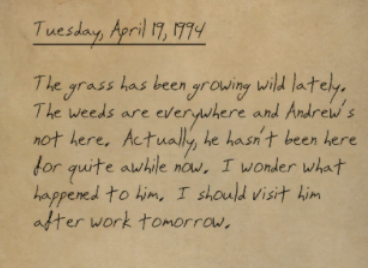 Tuesday, April 19, 1994
The grass has been growing wild lately.
The weeds are everywhere and Andrew's
not here. Actually, he hasn't been here
for quite awhile now. I wonder what
happened to him. I should visit him
after work tomorrow.